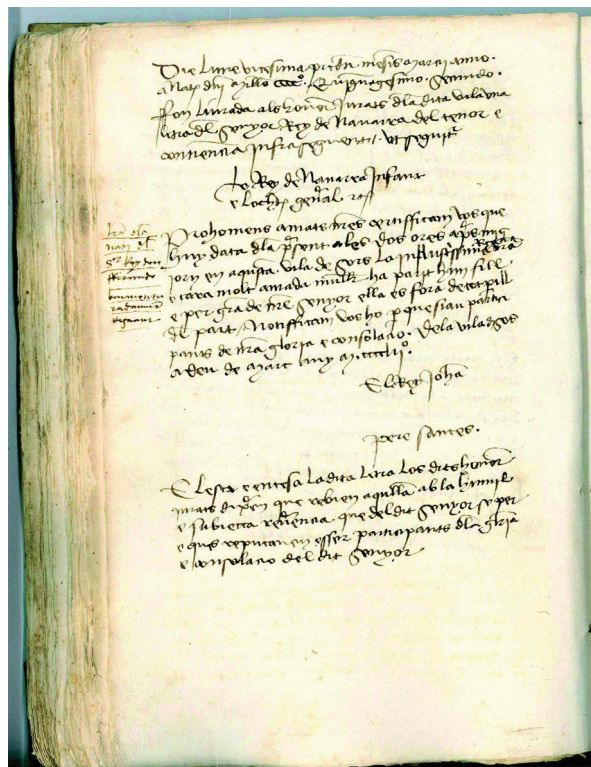 Die Lune vicesima predicti mensis marcii anno
a Nat dni Millo cccc.º Quinquagesimo Secundo
ffon liurada als honor Jurats dla dita vila vna
letra dl Senyor Rey de Nauarra del tenor e
continencia infraseguent. Vt seguitr
Lo Rey de Nauarra Infant
e Lochtt general
Prohomens amats nres certifficam vos que
huy data dla pñt ales dos ores apres mig
jorn en aquesta vila de Sors la Illustrissima Reyna
e cara molt amada muller ha parit hun fill
e per gra de nre senyor ella es fora de tot perill
de part. Notifficam vos ho perque siau partici
pants de nra gloria e consolacio. Dela vila de Sos
a deu de març any M.cccclii.º
El Rey Johã
pere santes.
E lesta e entesa la dita letra los dits honor
jurats dixeren que rebien aquella ab la humil
e subiecta reuerencia que del dit Senyor se per
e que reputauen esser participants dl gloria
e consolacio del dit Senyor
letra dela
dl
Sor Rey don
fferrando